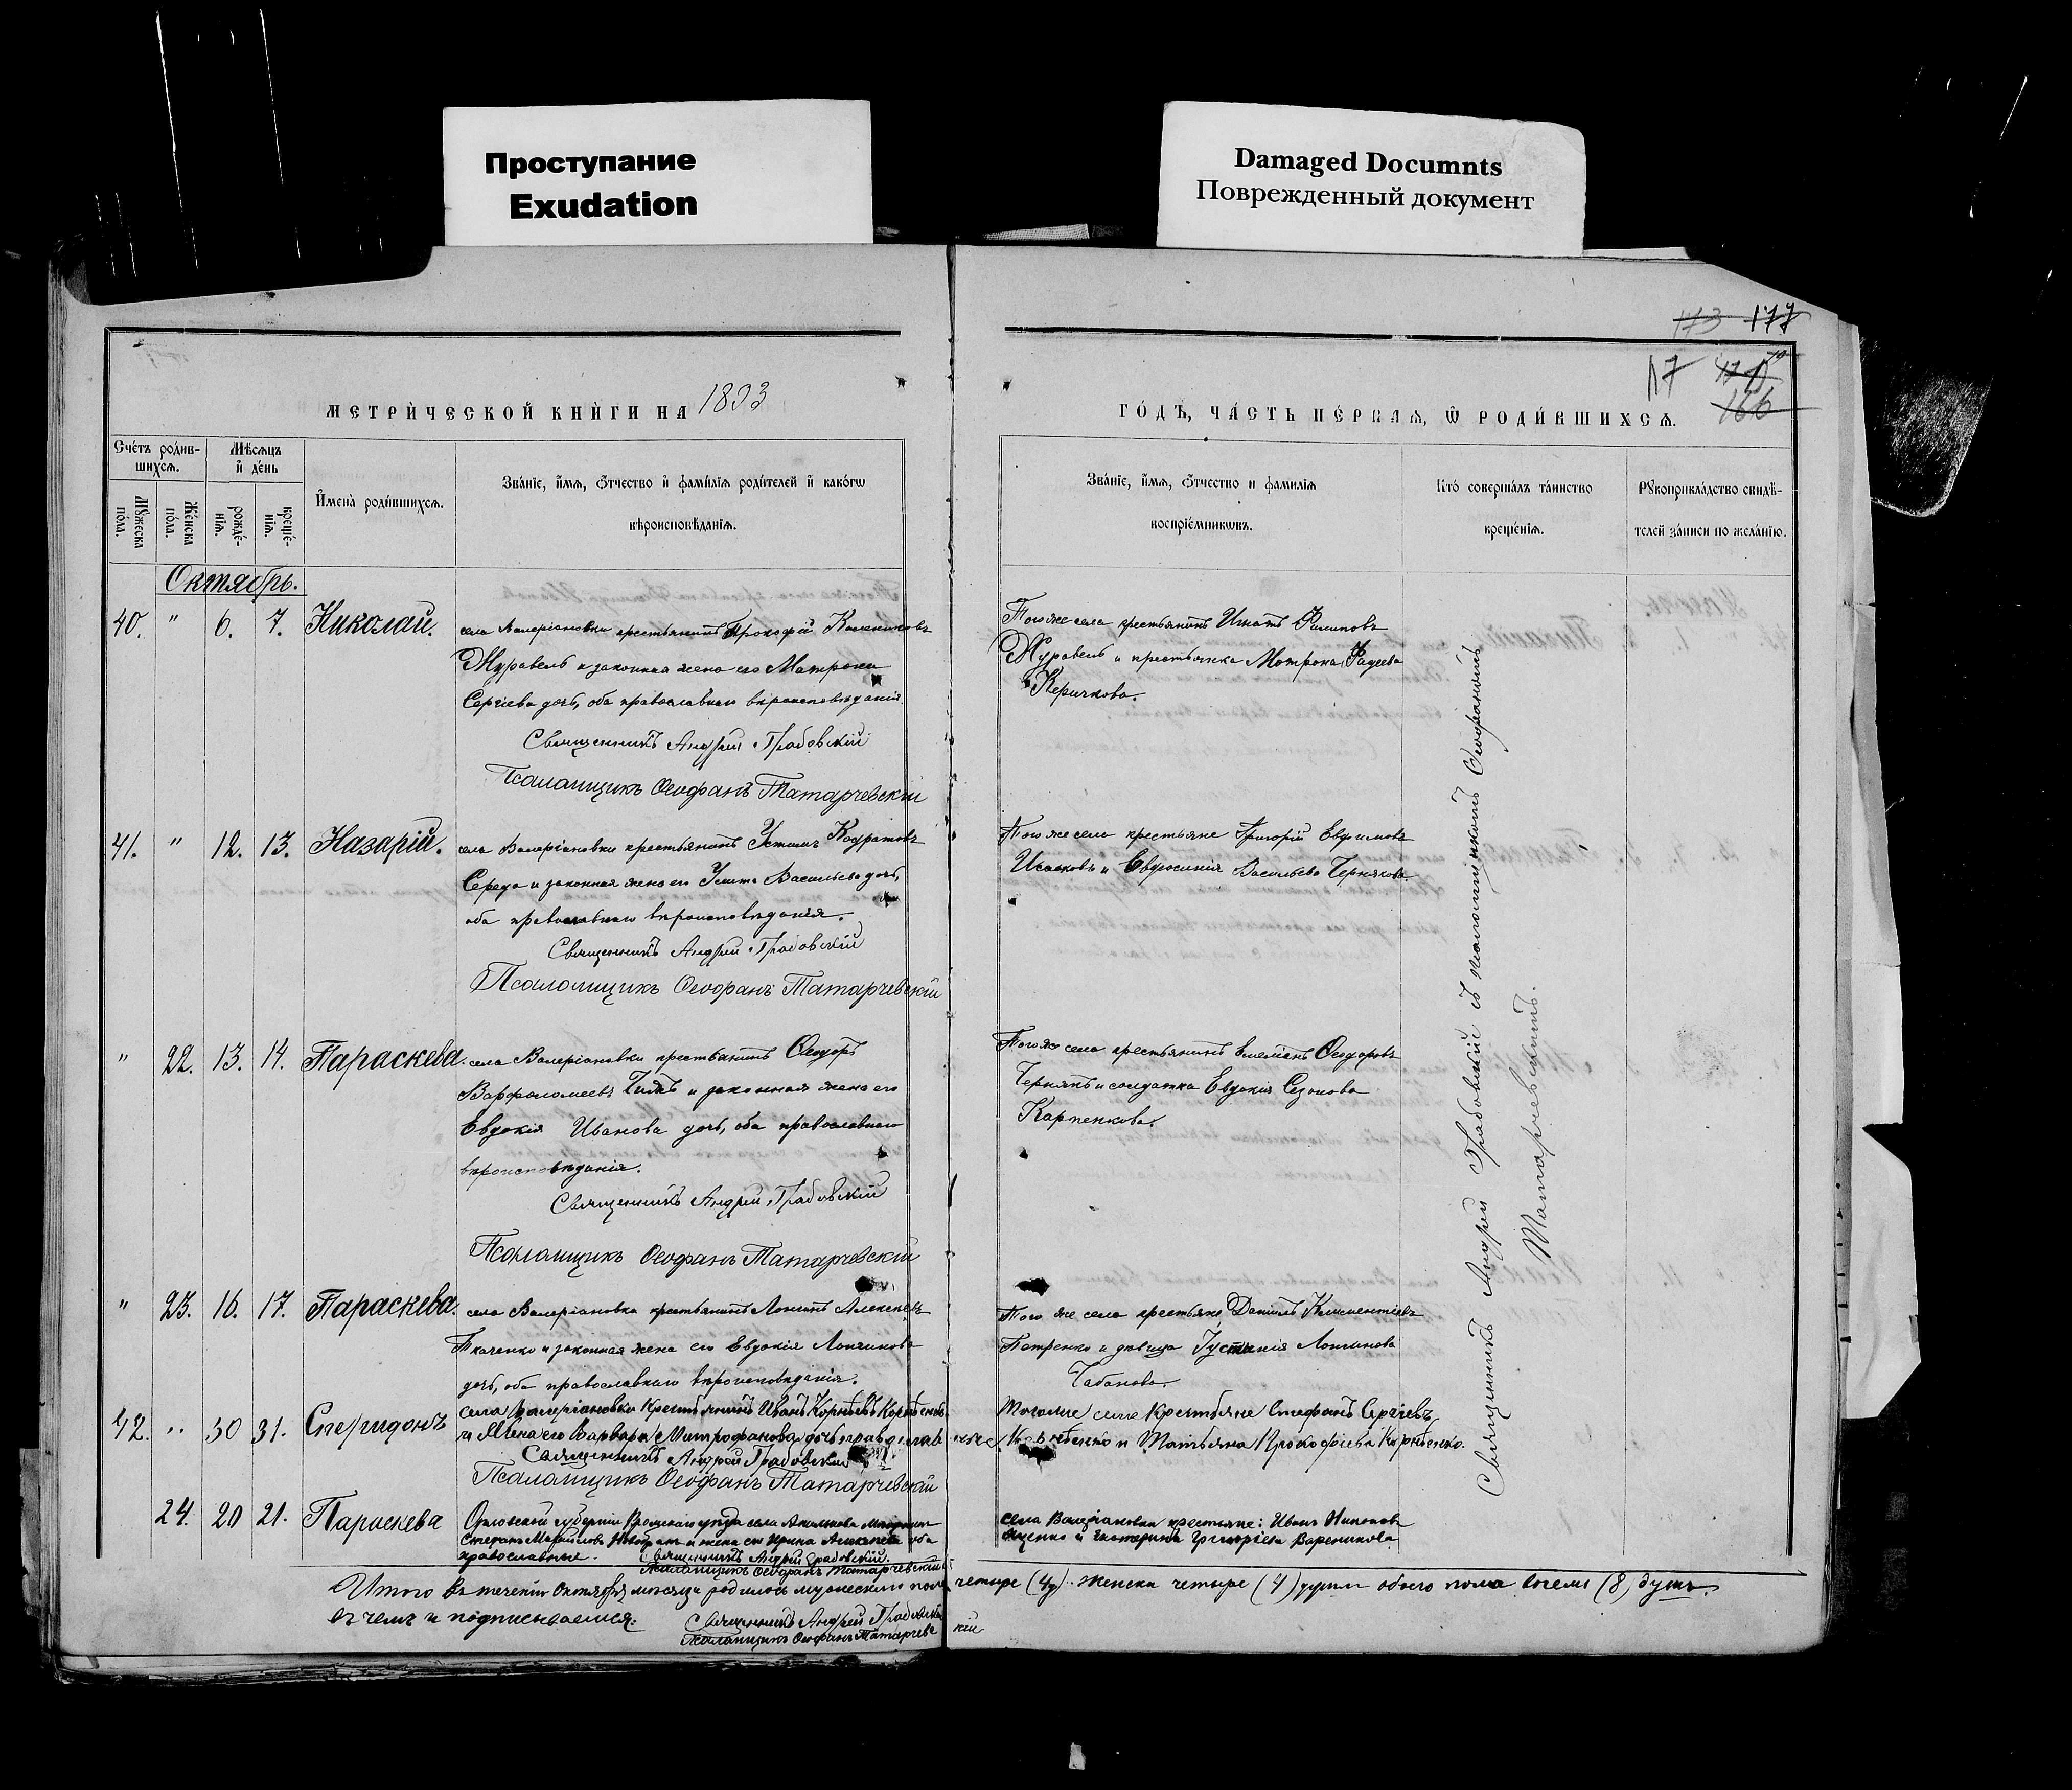 Проступание
Exudation
Damaged Documnts
Поврежденный документ
173 177
17
166
МЕТРИ́ЧЕСКОЙ КНИ́ГИ НА 1893
ГО́ДЪ, ЧА́СТЬ ПЕ́РВАЯ, Ѿ РОДИ́ВШИХСЯ.
Счётъ роди́вшихся.
Мѣсяцъ и де́нь
Мꙋжеска по́ла.
Же́нска по́ла.
рожде́нїя.
креще́нїя.
И҆мена̀ роди́вшихся.
Зва́нїе, и҆́мя, ѻ҆́тчество и҆ фами́лїя роди́телей и҆ како́гѡ
вѣроисповѣ́данїя.
Зва́нїе, и҆́мя, ѻ҆́тчество и фами́лїя
воспрїе́мникѡвъ.
Кто̀ соверша́лъ та́инство
креще́нїя.
Рꙋкоприкла́дство свидѣ́-
телей за́писи по жела́нїю.
Октябрь.
40. " 6. 7. Николай.
села Валеріановки крестьянинъ Прокофій
Журавель и законная жена его Матрона
Сергіева дочь, оба православнаго вѣроисповѣданія.
Священникъ Андрей Грабовскій
Псаломщикъ Ѳеофанъ Татарчевскій
Того же села крестьянинъ Игнатъ Филиповъ
Журавель и крестьянка Мотрона Фадеева
Керичкова.
41. " 12. 13. Назарій.
села Валеріановки крестьянинъ Устимъ Кодратовъ
Середа и законная жена его Улита Васильева дочь,
оба православнаго вѣроисповѣданія.
Священникъ Андрей Грабовскій
Псаломщикъ Ѳеофанъ Татарчевскій
Того же села крестьяне Григорій Евфимовъ
Исаковъ и Евфросинія Васильева Чернякова.
" 22. 13. 14. Параскева.
села Валеріановки крестьянинъ Ѳеодоръ
Варфоломеевъ и законная жена его
Евдокія Иванова дочь, оба православнаго
вѣроисповѣданія.
Священникъ Андрей Грабовскій
Псаломщикъ Ѳеофанъ Татарчевскій
Того же села крестьянинъ Емеліанъ Ѳеодоровъ
Чернякъ и солдатка Евдокія Сазонова
Карпенкова.
" 23. 16. 17. Параскева.
села Валеріановки крестьянинъ Логинъ Алексѣевъ
Ткаченко и законная жена его Евдокія Лонгинова
дочь, оба православнаго вѣроисповѣданія.
Того же села крестьяне Даніилъ Климентіевъ
Петренко и дѣвица Іустинія Лонгинова
Чабанова.
42. " 30 31. Спиридонъ
села Валеріановки Крестьянинъ Иванъ Корнѣевъ
и Жена его Варвара Митрофанова дочь православные
Священникъ Андрей Грабовскій
Псаломщикъ Ѳеофанъ Татарчевскій
Тогоже села Крестьяне Стефанъ Сергіевъ
и Татьяна Прокофіева Корнѣенко.
24. 20 21. Параскева
Орловской губерніи уѣзда села
Стефанъ Михайловъ и жена его Ирина Алексѣева оба
православные. Священникъ Андрей Грабовскій.
Псаломщикъ Ѳеофанъ Татарчевскій
села Валеріановки крестьяне: Иванъ
и Екатерина Григоріева Вареникова
Священникъ Андрей Грабовскій съ псаломщикомъ Ѳеофаномъ
Татарчевскимъ.
Итого въ теченіи Октября мѣсяца родилось мужескаго пола четыре (4) Женска четыре (4) душъ обоего пола восемь (8) душъ.
въ чемъ и подписываемся.
Священникъ Андрей Грабовскій
Псаломщикъ Ѳеофанъ Татарчевскій